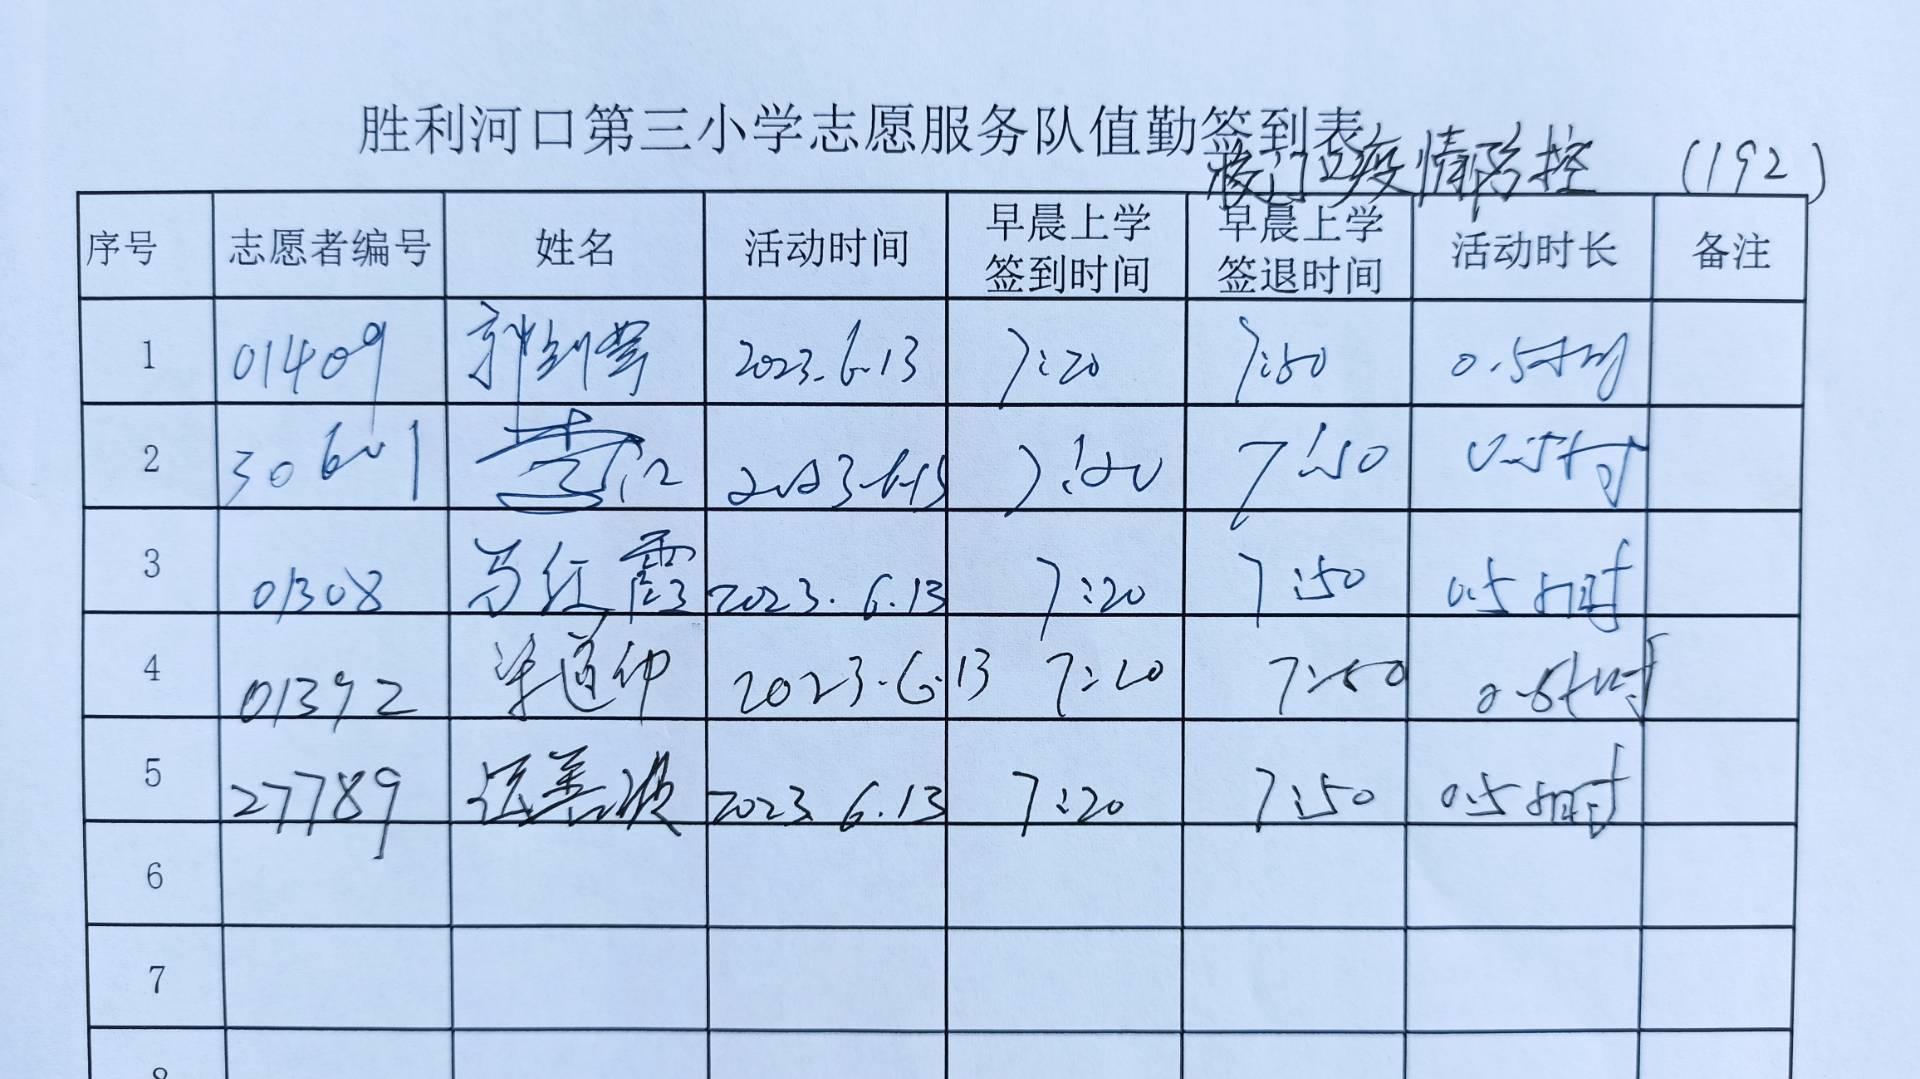 胜利河口第三小学志愿服务队值勤签到表
校门口疫情防控 (192)
序号 志愿者编号 姓名 活动时间 早晨上学签到时间 早晨上学签退时间 活动时长 备注
1 01409 2023.6.13 7:20 7:50 0.5小时
2 30601 李江 2023.6.13 7:20 7:50 0.5小时
3 01308 马红霞 2023.6.13 7:20 7:50 0.5小时
4 01392 2023.6.13 7:20 7:50 0.5小时
5 27789 2023.6.13 7:20 7:50 0.5小时
6
7
8